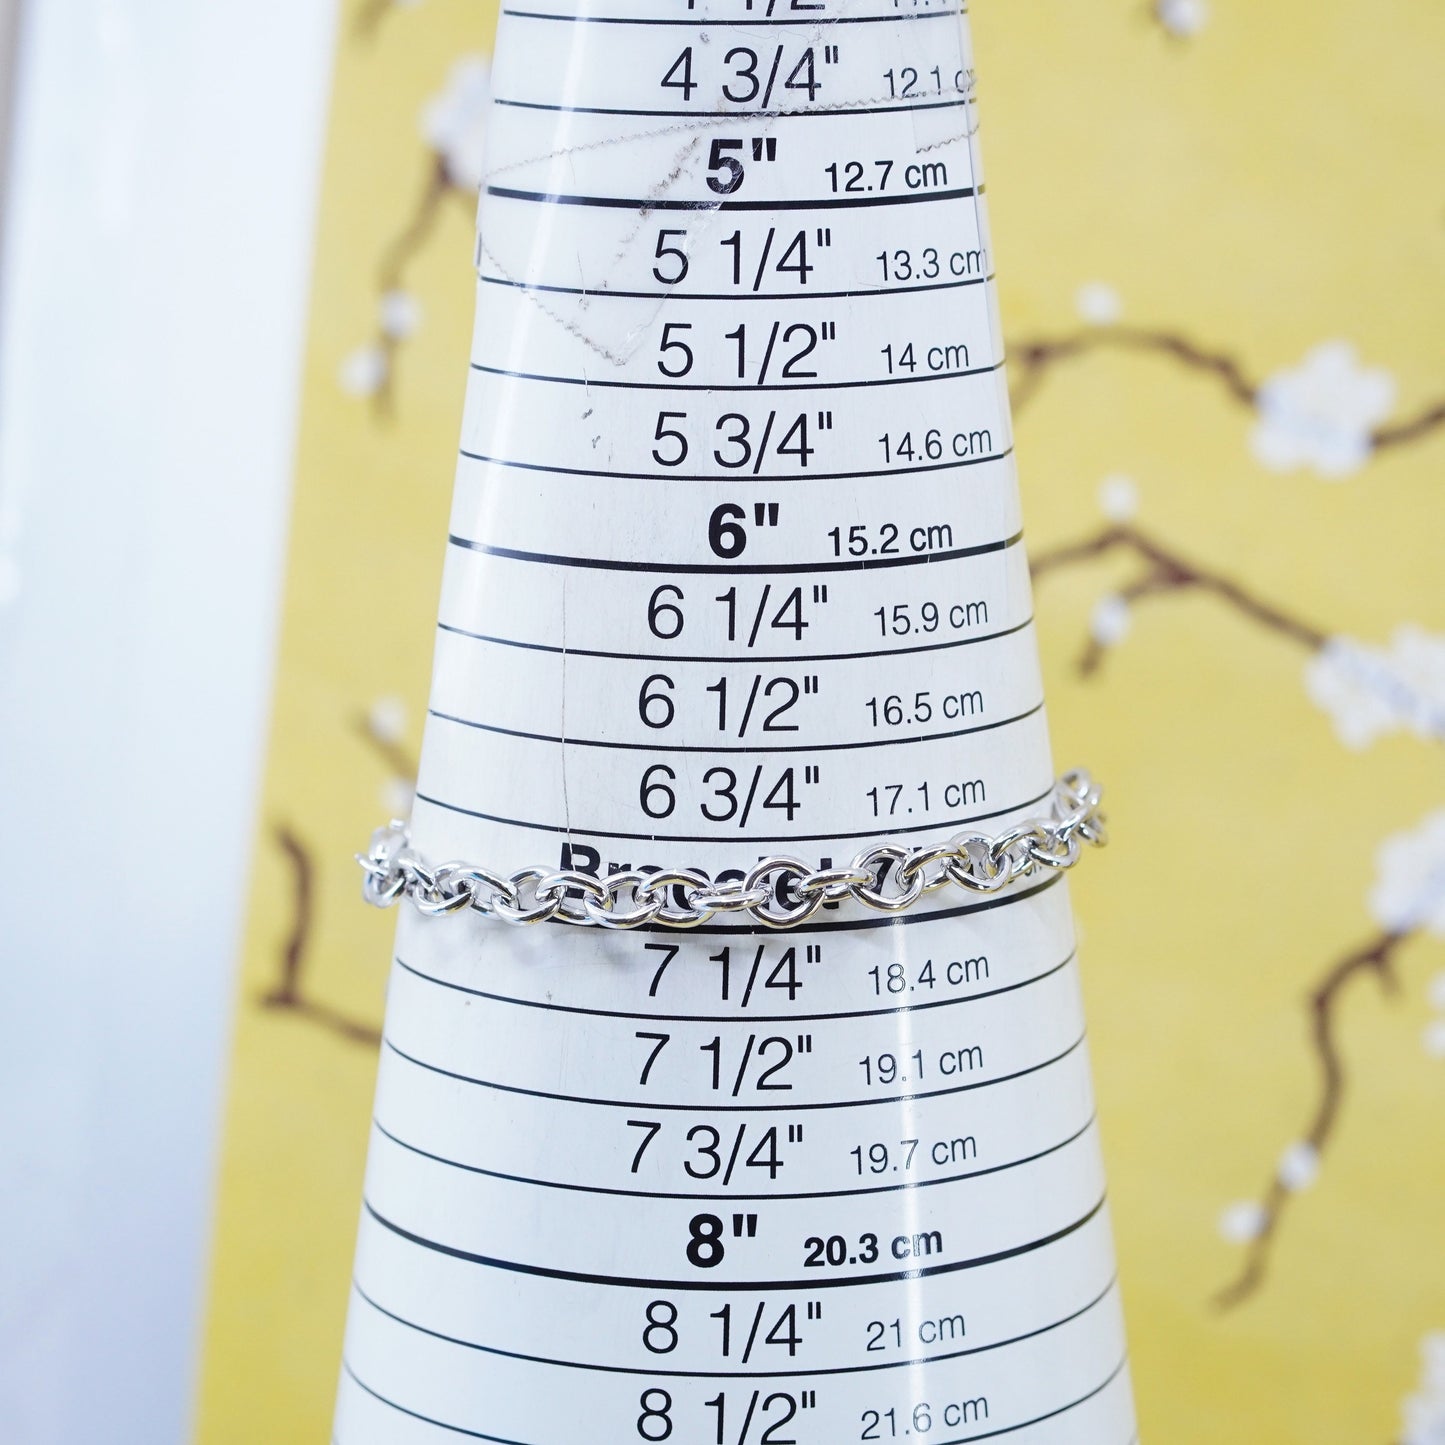 4 3/4" 12.1
5" 12.7 cm
5 1/4" 13.3 cm
5 1/2" 14 cm
5 3/4" 14.6 cm
6" 15.2 cm
6 1/4" 15.9 cm
6 1/2" 16.5 cm
6 3/4" 17.1 cm
Bracelet 7"
7 1/4" 18.4 cm
7 1/2" 19.1 cm
7 3/4" 19.7 cm
8" 20.3 cm
8 1/4" 21 cm
8 1/2" 21.6 cm